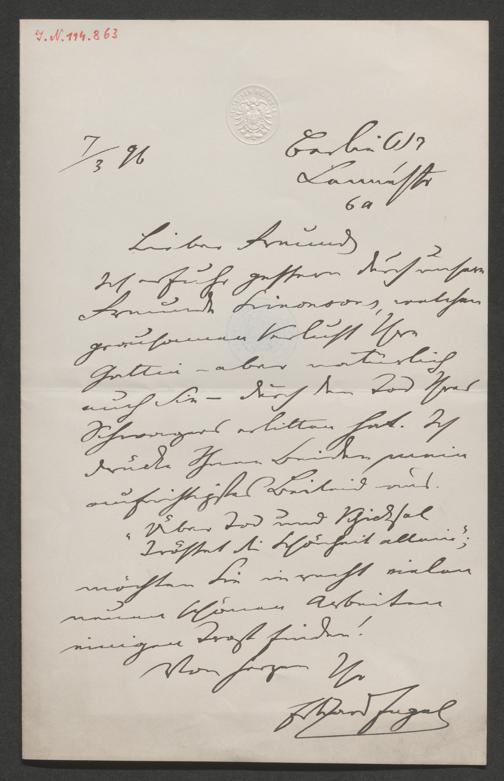 J.N. 114.863
7/3 96
Berlin W
Lennéstr
6a
Lieber Freund
Ich erfuhr gestern durch unsern
Freunde, welchen
grausamen Verlust Ihre
Gattin – aber natürlich
auch Sie – durch den Tod Ihres
Schwagers erlitten hat. Ich
drücke Ihnen beiden mein
aufrichtigstes Beileid aus.
"Über Tod und Schicksal
Tröstet die Schönheit allein";
möchten Sie in recht vielen
neuen schönen Arbeiten
einigen Trost finden!
Von Herzen Ihr